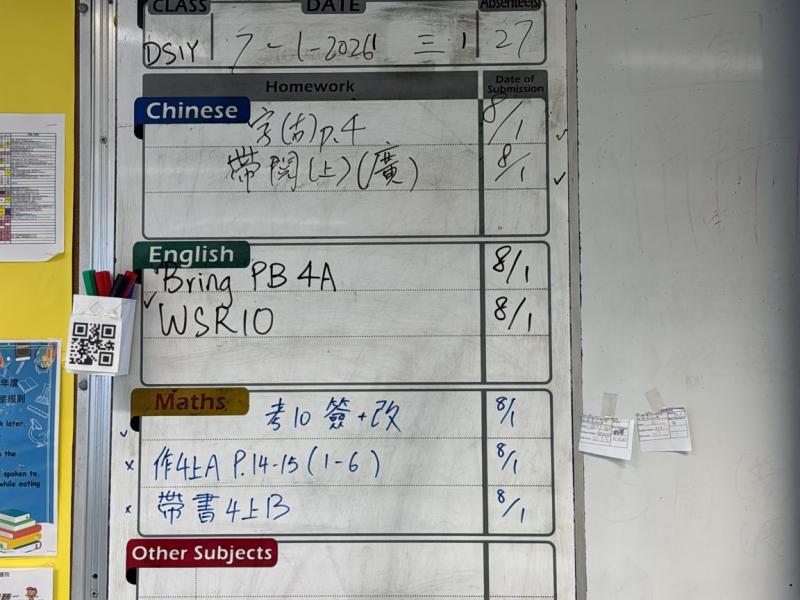 CLASS DATE Absentees
DSIY 7-1-2026 三 1 27
Homework Date of Submission
Chinese
字(古)p.4 8/1
帶閱(上)(廣) 8/1
English
Bring PB 4A 8/1
WSR10 8/1
Maths
考10 簽+改 8/1
作4上A P.14-15(1-6) 8/1
帶書4上B 8/1
Other Subjects
年度
規則
k later.
spoken to.
while eating